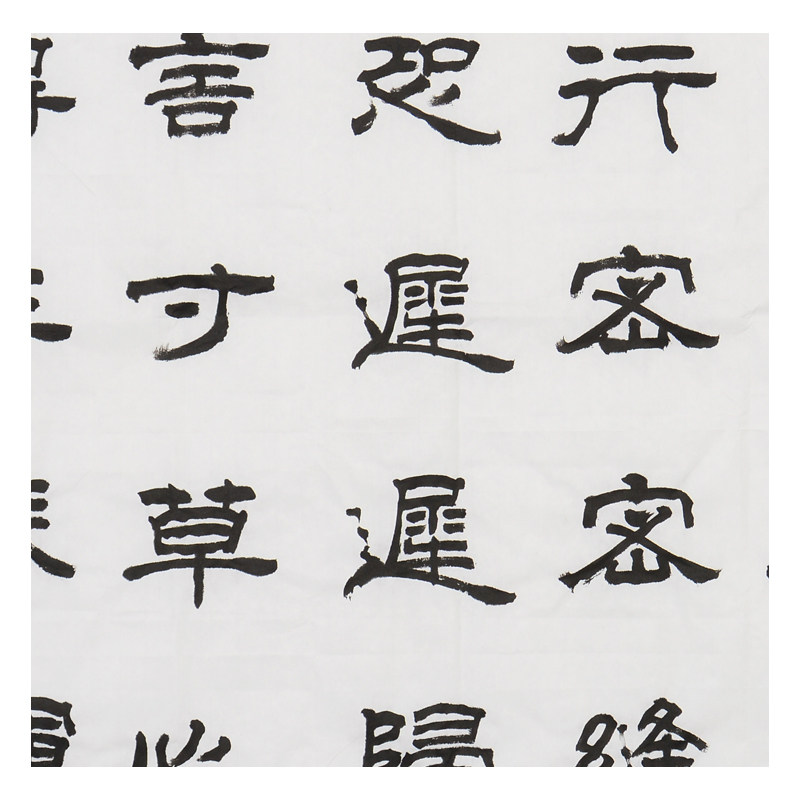 行密密縫
恐遲遲歸
言寸草心